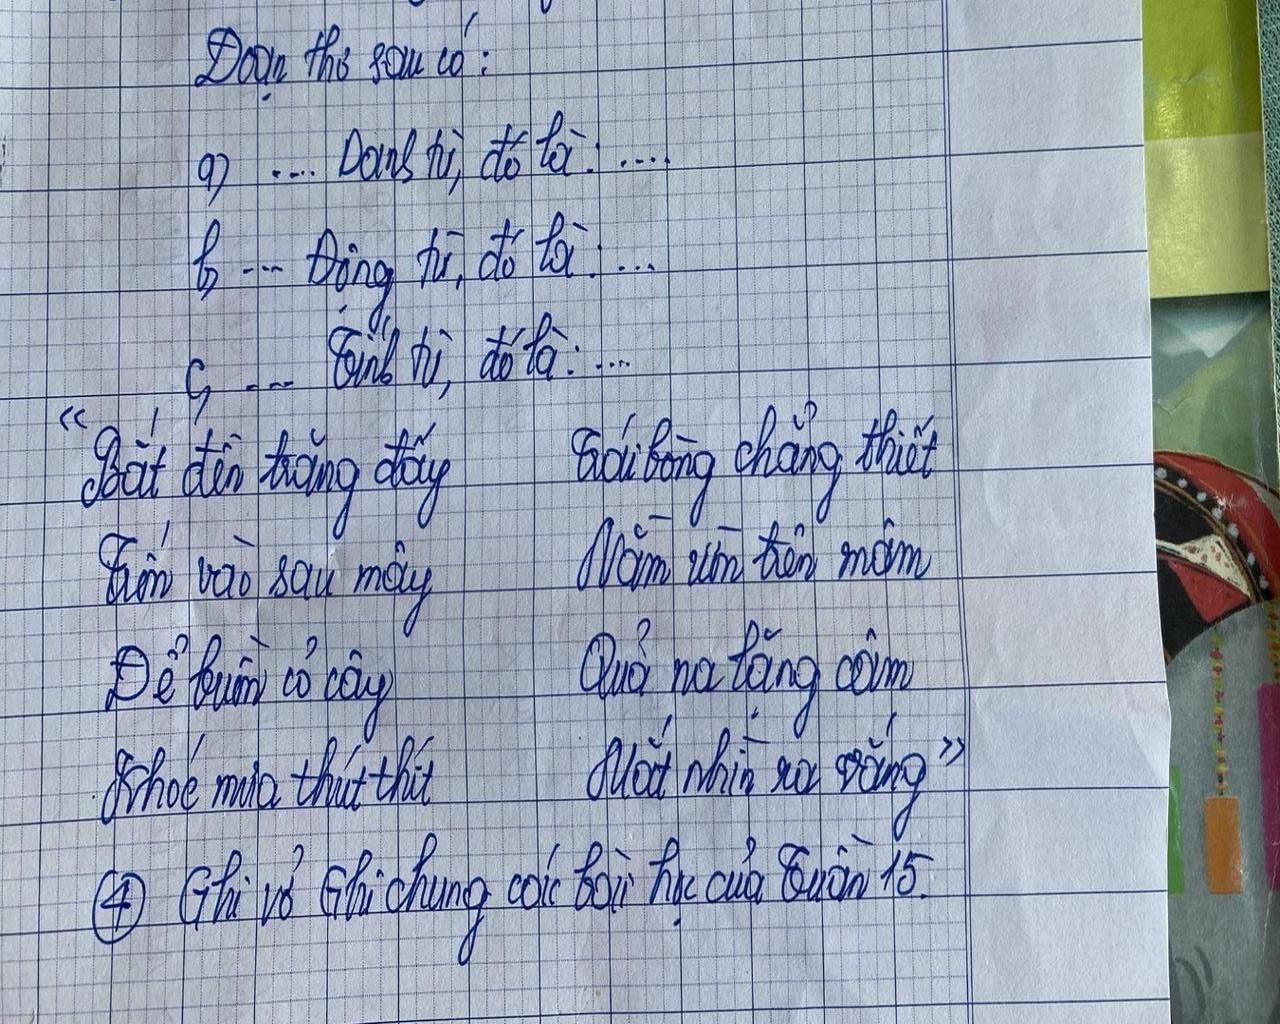 Đoạn thơ sau có:
a) .... Danh từ, đó là: ....
b, --- Động từ, đó là: ...
c, --- Tính từ, đó là: ...
"Bắt đền trăng đấy
Trốn vào sau mây
Để buồn cỏ cây
Khoé mưa thút thít
Gói bòng chẳng thiết
Nằm ườn trên mâm
Quả na lặng câm
Mắt nhìn xa vắng"
④ Ghi vở Ghi chung các bài học của Tuần 15.